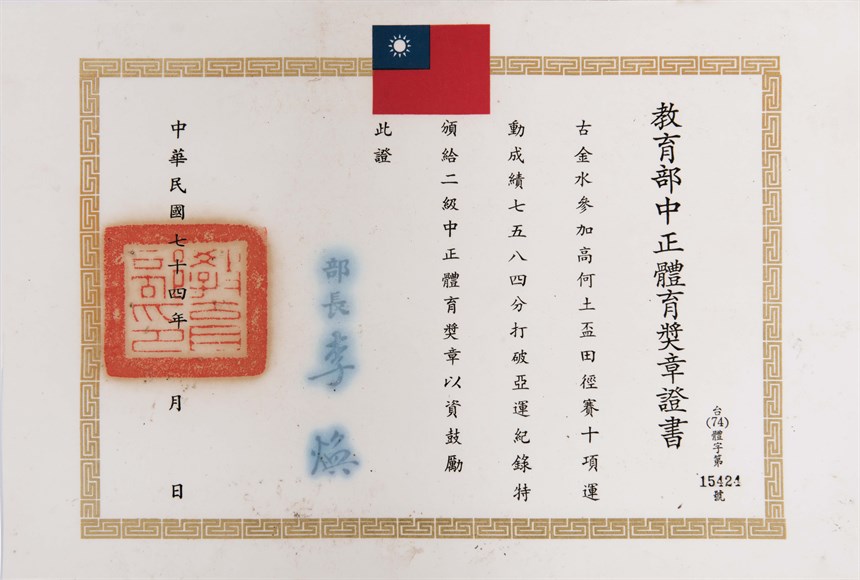 教育部中正體育獎章證書
台(74)體字第15424號
古金水參加高何土盃田徑賽十項運
動成績七五八四分打破亞運紀錄特
頒給二級中正體育獎章以資鼓勵
此證
部長李煥
中華民國七十四年 月 日
教育部印